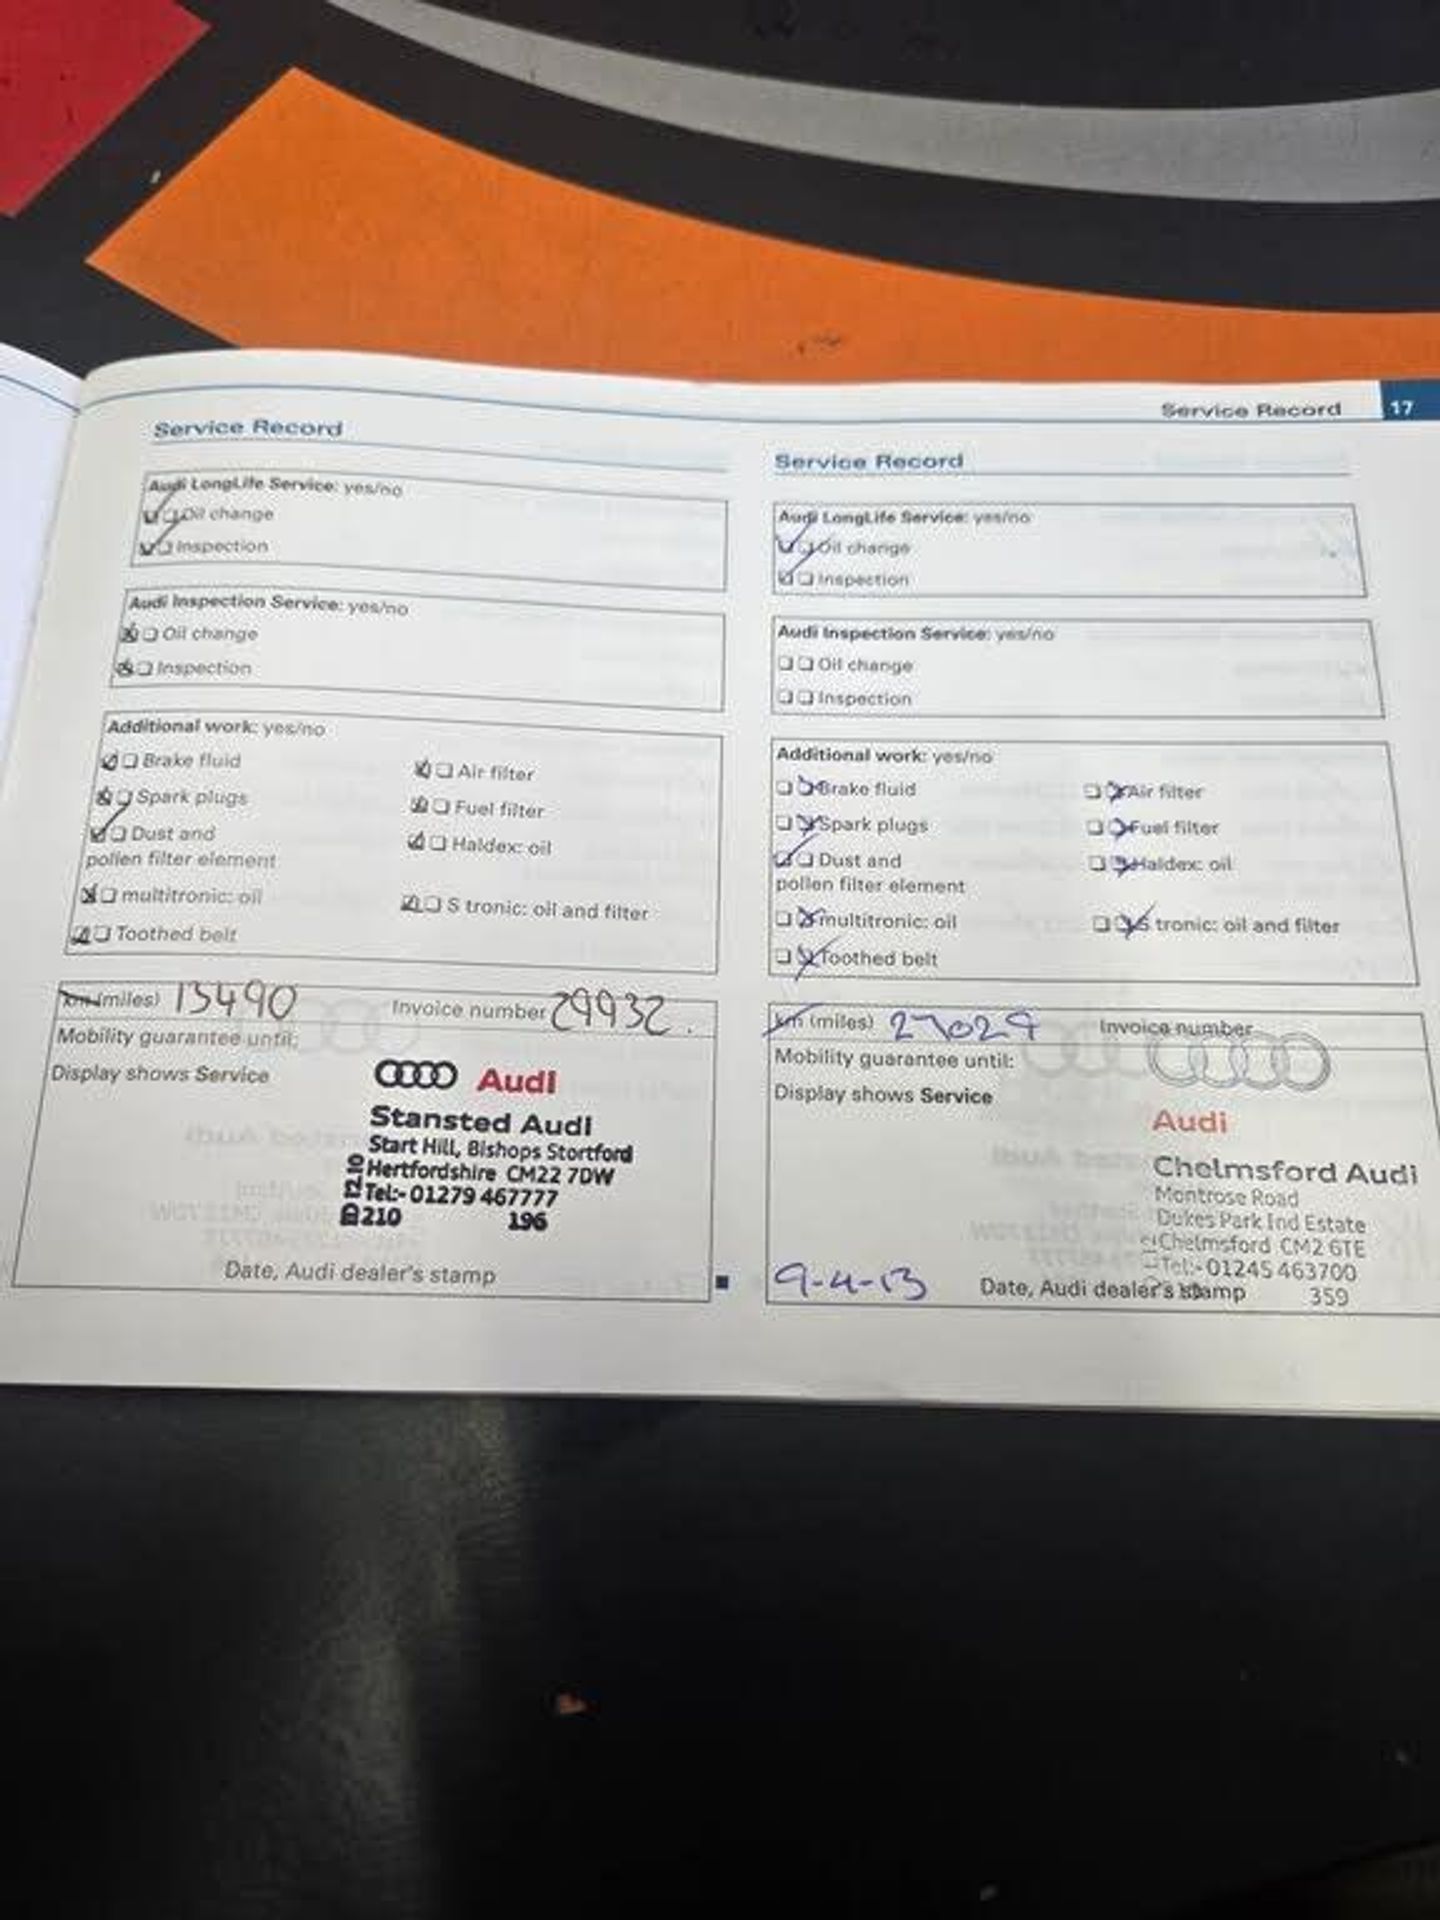 Service Record 17
Service Record
Audi LongLife Service: yes/no
Oil change
Inspection
Audi Inspection Service: yes/no
Oil change
Inspection
Additional work: yes/no
Brake fluid
Air filter
Spark plugs
Fuel filter
Dust and
pollen filter element
Haldex: oil
multitronic: oil
S tronic: oil and filter
Toothed belt
km (miles) 13490 Invoice number 29932.
Mobility guarantee until:
Display shows Service
Audi
Stansted Audi
Start Hill, Bishops Stortford
Hertfordshire CM22 7DW
Tel:- 01279 467777
210 196
Date, Audi dealer's stamp
Service Record
Audi LongLife Service: yes/no
Oil change
Inspection
Audi Inspection Service: yes/no
Oil change
Inspection
Additional work: yes/no
Brake fluid
Air filter
Spark plugs
Fuel filter
Dust and
pollen filter element
Haldex: oil
multitronic: oil
S tronic: oil and filter
Toothed belt
km (miles) 27029 Invoice number
Mobility guarantee until:
Display shows Service
Audi
Chelmsford Audi
Montrose Road
Dukes Park Ind Estate
Chelmsford CM2 6TE
Tel:- 01245 463700
359
9-4-13 Date, Audi dealer's stamp